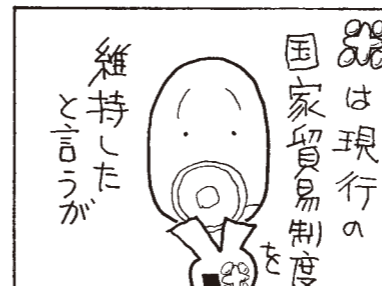 は現行の
国家貿易制度を
維持した
と言うが